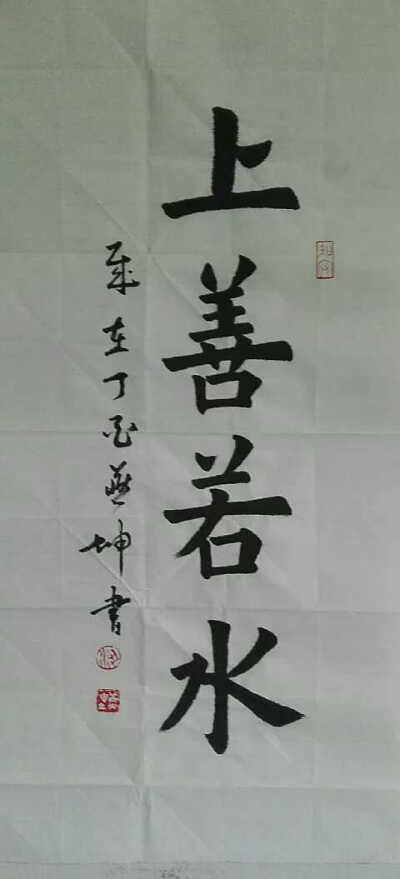 上善若水
歲在丁酉燕坤書